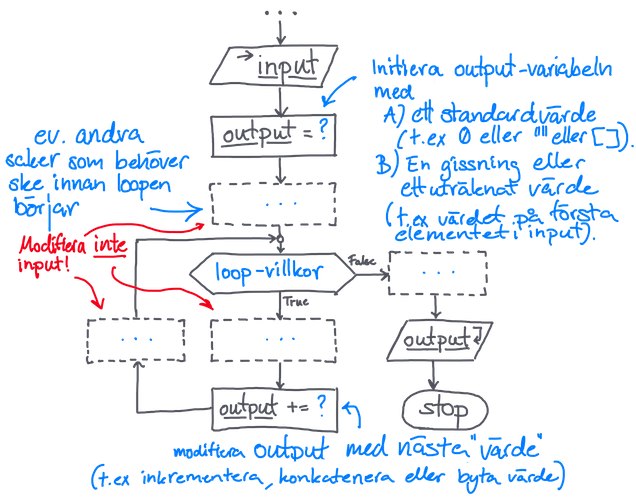 ...
→ input
Initiera output-variabeln
med
A) ett standardvärde
(t.ex 0 eller "" eller []).
B) En gissning eller
ett uträknat värde
(t.ex värdet på första
elementet i input).
output = ?
ev. andra
saker som behöver
ske innan loopen
börjar
...
Modifiera inte
input!
loop-villkor
False
True
...
...
...
output
output += ?
stop
modifiera output med nästa "värde"
(t.ex inkrementera, konkatenera eller byta värde)